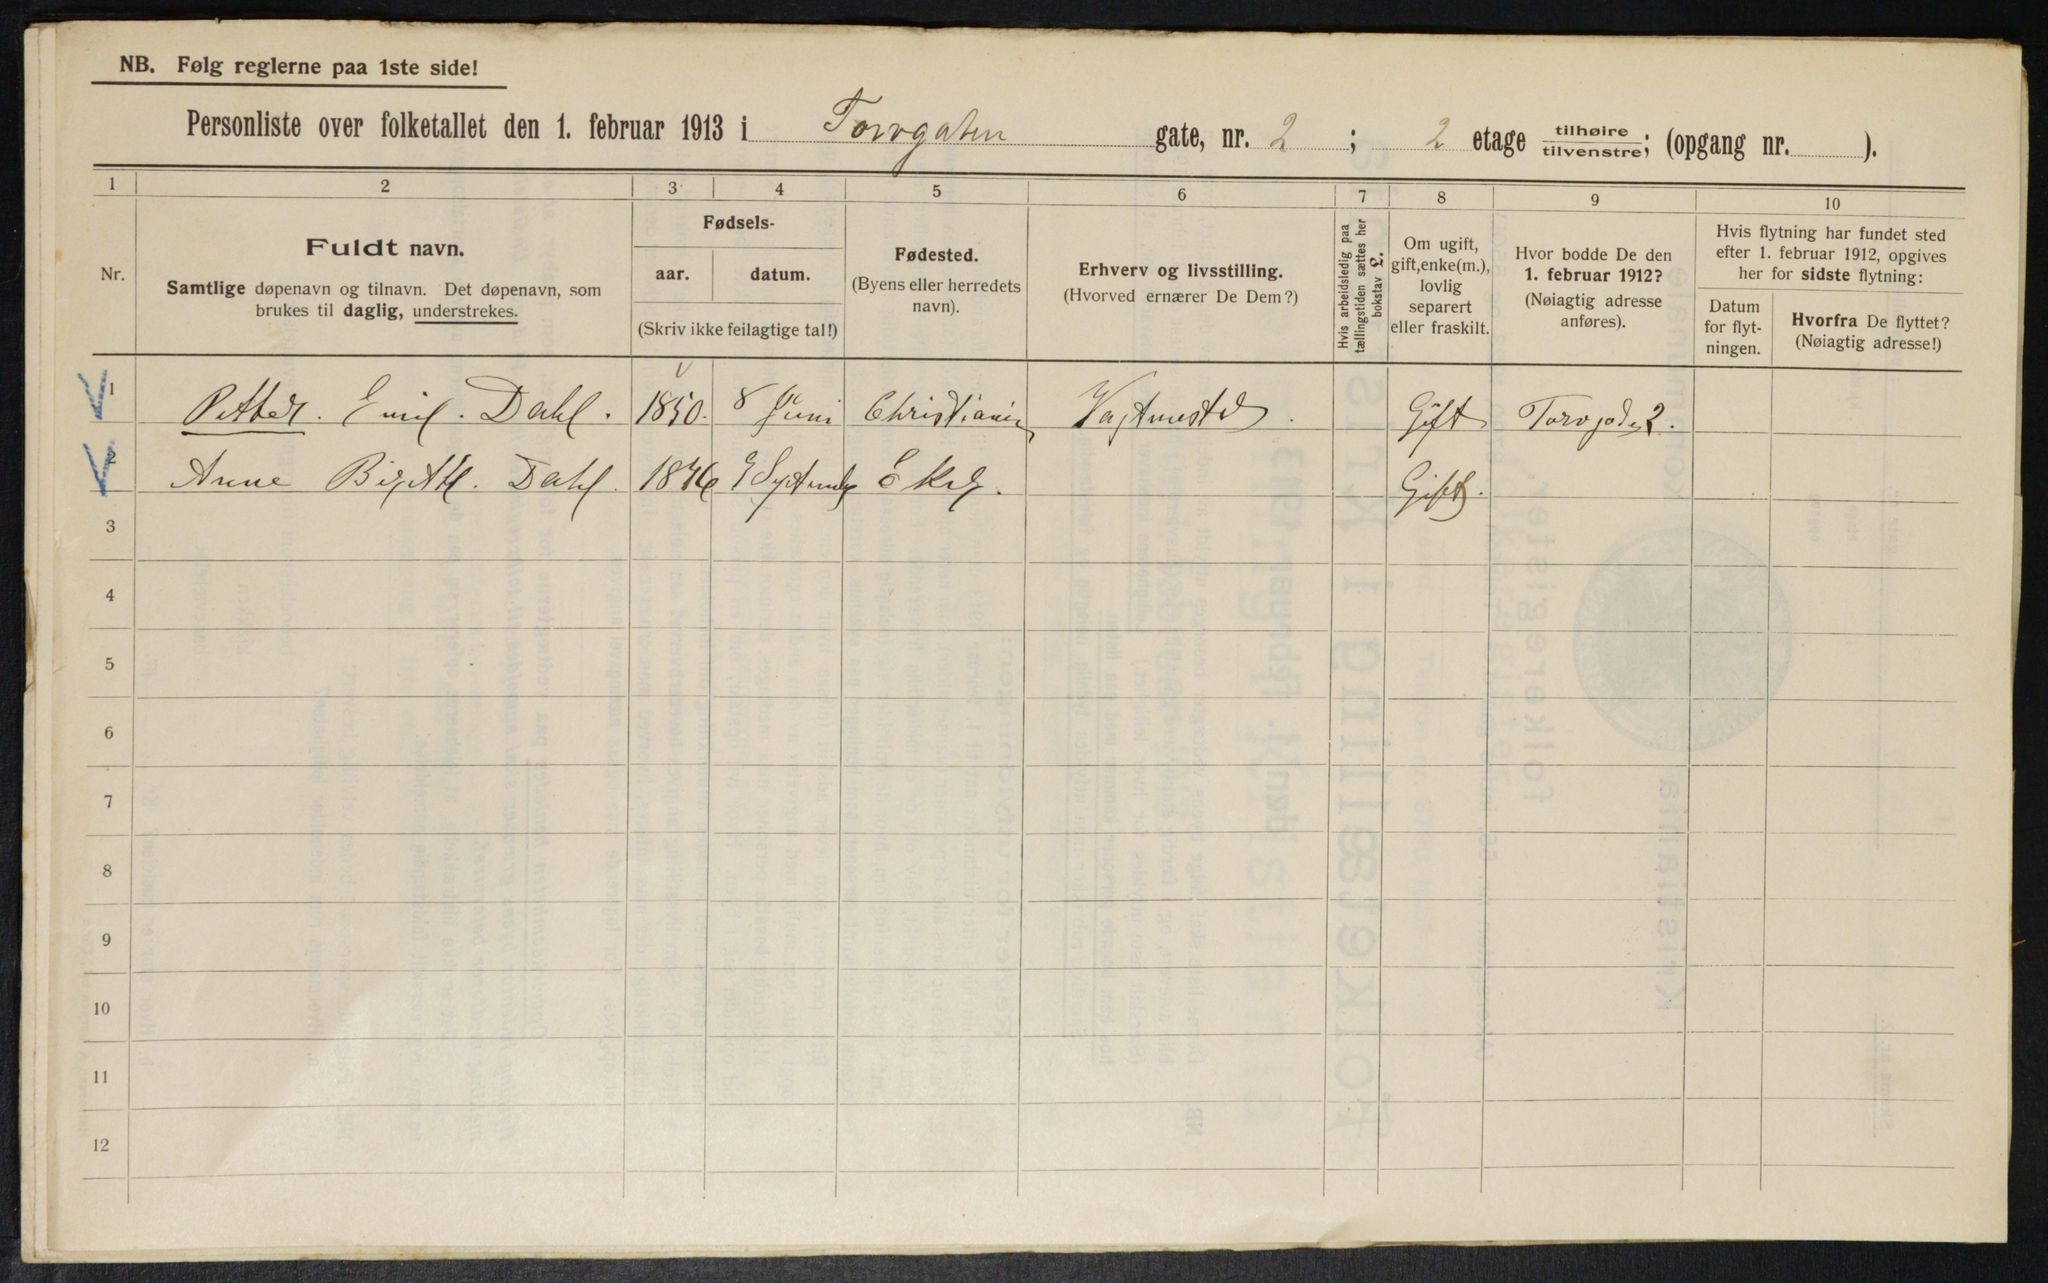 NB. Følg reglerne paa 1ste side!
Personliste over folketallet den 1. februar 1913 i Torvgaten gate, nr. 2 ; 2 etage tilhøire tilvenstre; (opgang nr. ).
1 2 3 4 5 6 7 8 9 10
Nr.
Fuldt navn.
Samtlige døpenavn og tilnavn. Det døpenavn, som
brukes til daglig, understrekes.
Fødsels-
aar. datum.
(Skriv ikke feilagtige tal!)
Fødested.
(Byens eller herredets
navn).
Erhverv og livsstilling.
(Hvorved ernærer De Dem?)
Hvis arbeidsledig paa
tællingstiden sættes her
bokstav L.
Om ugift,
gift, enke(m.),
lovlig
separert
eller fraskilt.
Hvor bodde De den
1. februar 1912?
(Nøiagtig adresse
anføres).
Hvis flytning har fundet sted
efter 1. februar 1912, opgives
her for sidste flytning:
Datum
for flyt-
ningen.
Hvorfra De flyttet?
(Nøiagtig adresse!)
1 Petter. Emil. Dahl. 1850. 8 Juni Christiania Vagtmester. Gift Torvgaden 2.
2 Anne Dahl. Gift.
3
4
5
6
7
8
9
10
11
12